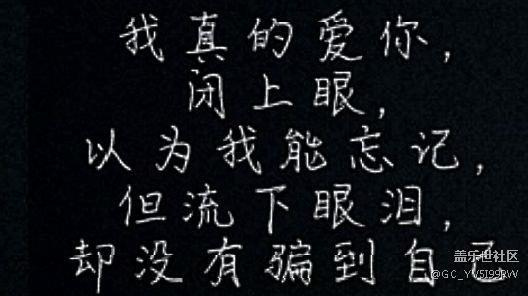 我真的爱你，
闭上眼，
以为我能忘记，
但流下眼泪，
却没有骗到自己
盖乐世社区
@GC_YV5I99RW